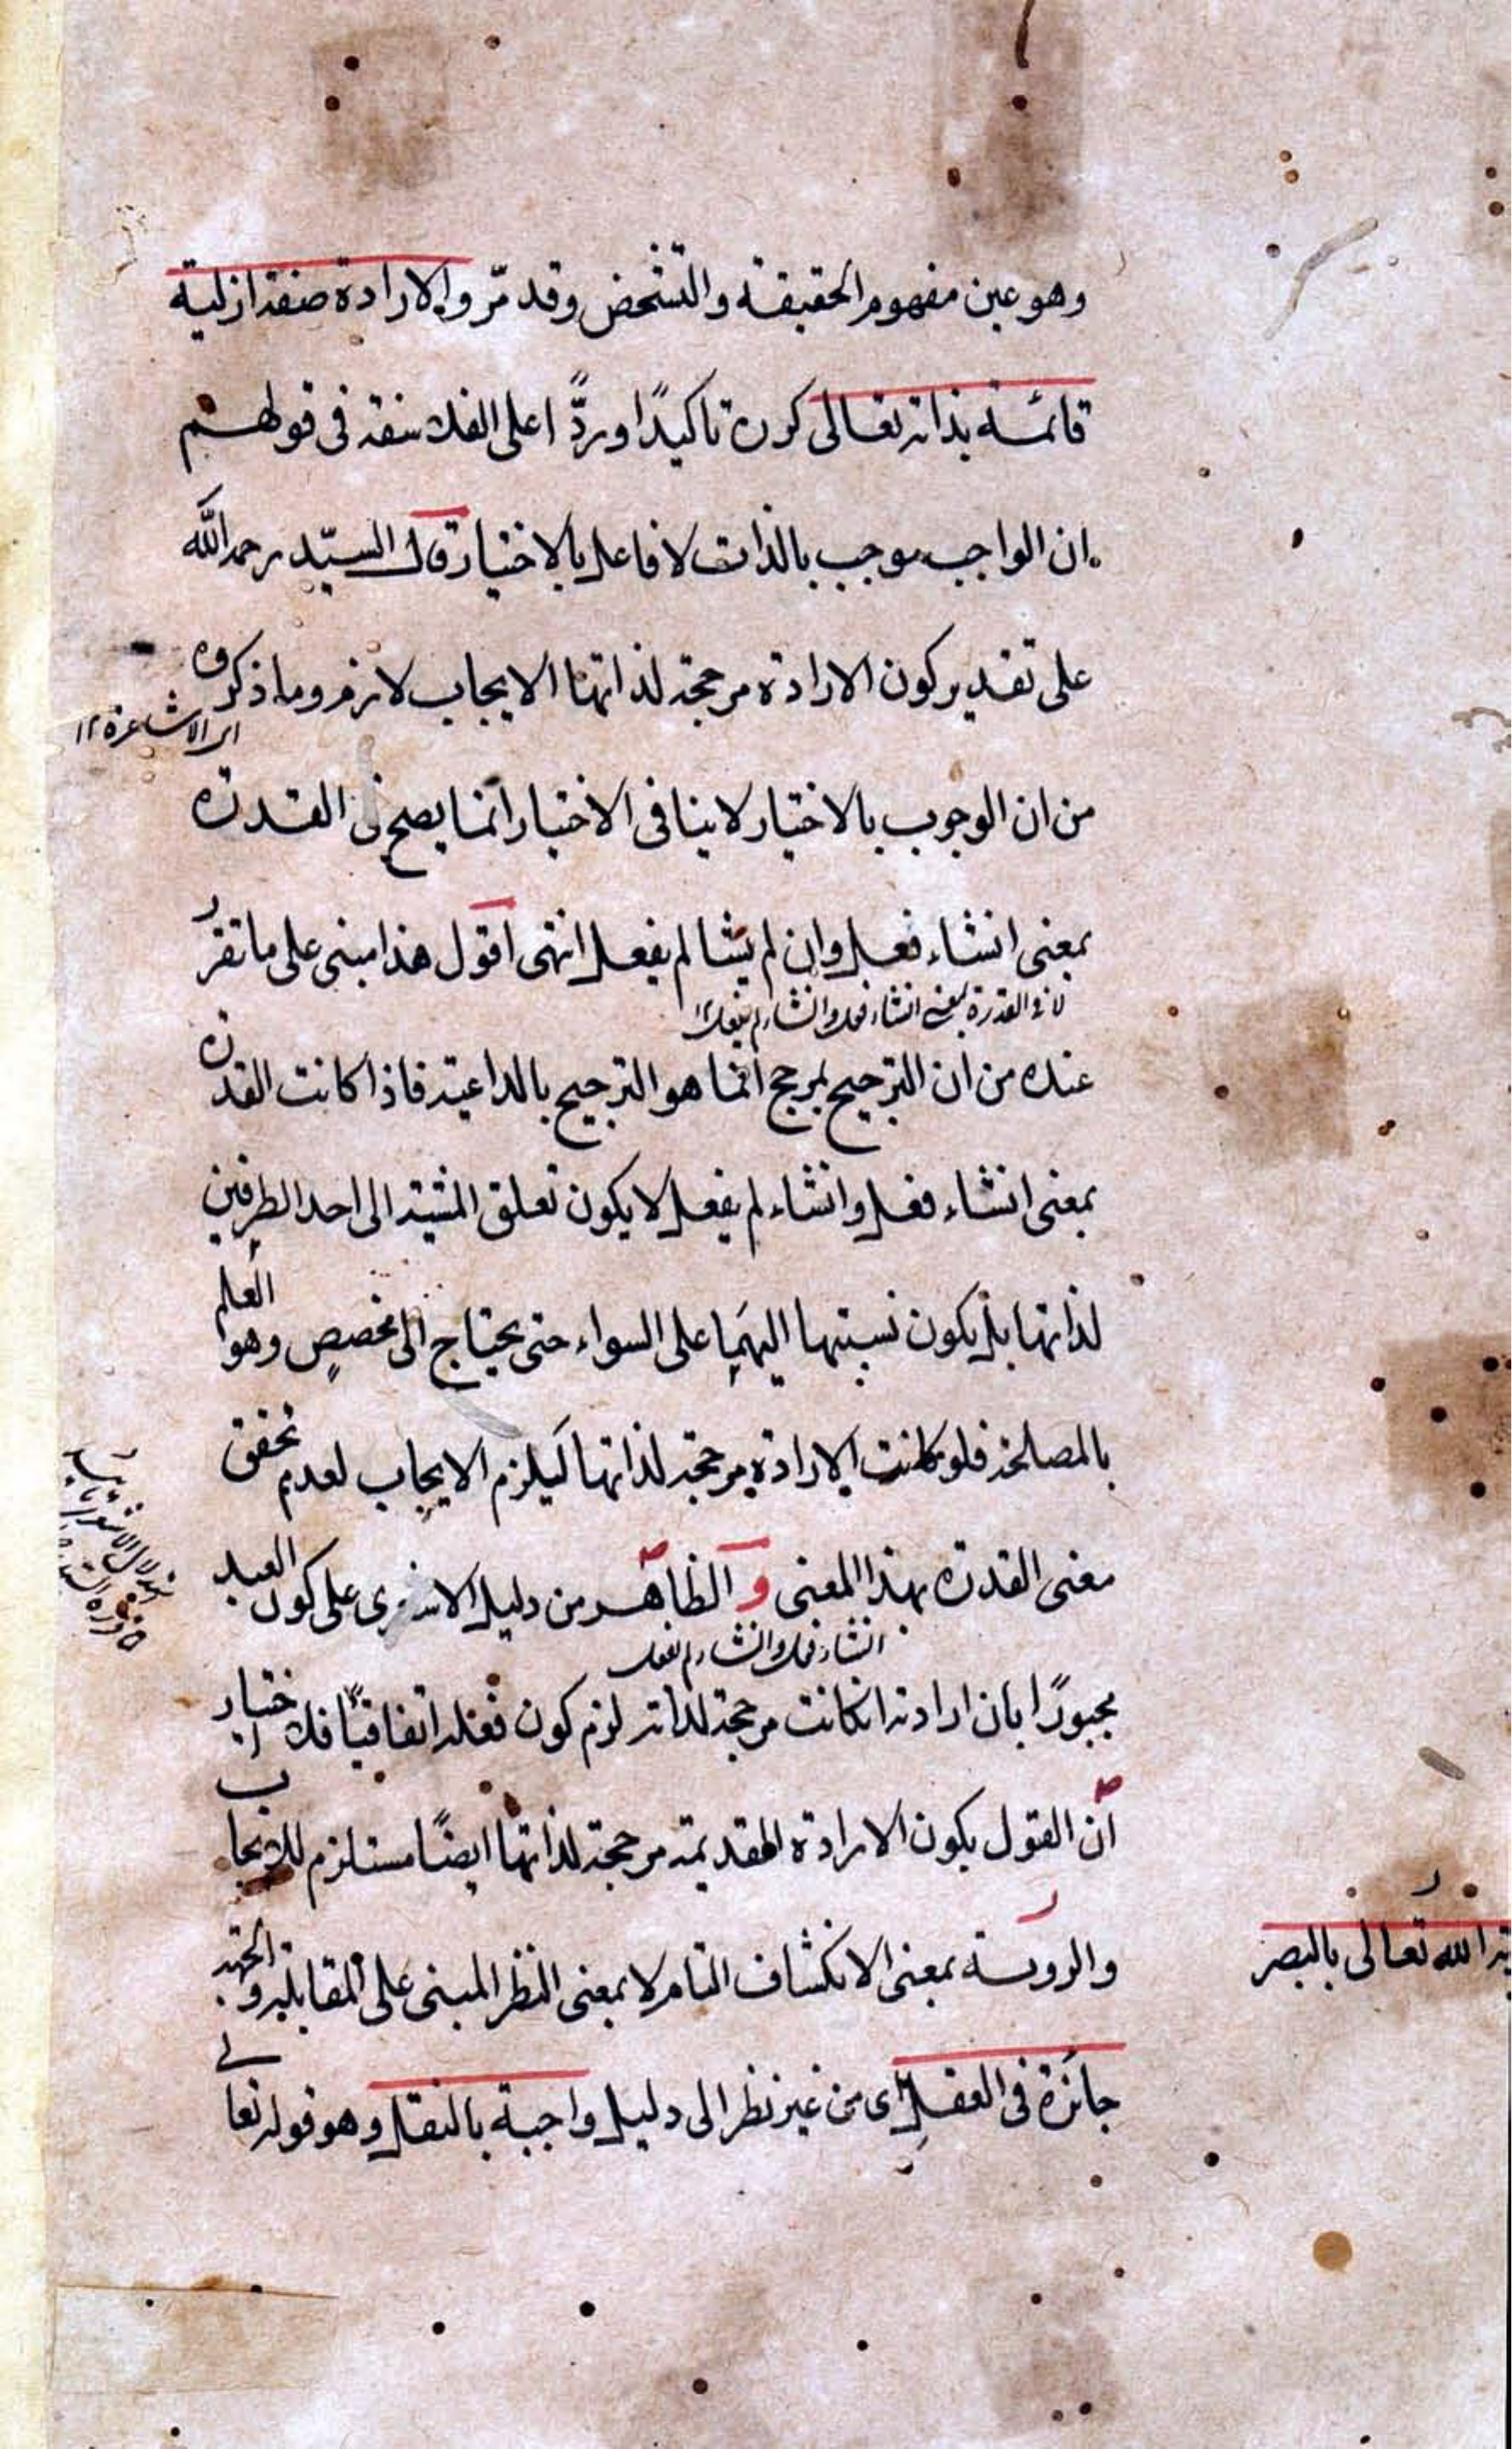 وهو عين مفهوم الحقيقة والتشخص وقد مرّ والارادة صفة ازلية
قائمة بذاته تعالى كرره تاكيدًا وردًّا على الفلاسفة فى قولهم
ان الواجب موجب بالذات لا فاعل بالاختيار قال السيّد رحمه الله
على تقدير كون الارادة مرجحة لذاتها الايجاب لازم وما ذكروه
اى الاشاعرة ١٢
من ان الوجوب بالاختيار لا ينافى الاختيار انما يصح فى القدرة
بمعنى انشاء فعل وان لم يشا لم يفعل انتهى اقول هذا مبنى على ما تقرر
لا فى القدرة بمعنى انشاء فعل وانشاء لم يفعل ١٢
عنده من ان الترجيح بمرجح انما هو الترجيح بالداعية فاذا كانت القدرة
بمعنى انشاء فعل وانشاء لم يفعل لا يكون تعلق المشية الى احد الطرفين
لذاتها بل يكون نسبتها اليهما على السواء حتى يحتاج الى مخصص وهو العلم
بالمصلحة فلو كانت الارادة مرجحة لذاتها ليلزم الايجاب لعدم تحقق
معنى القدرة بهذا المعنى و الظاهر من دليل الاشعرى على كون العبد
انشاء فعل وانشاء لم يفعل
مجبورًا بان ارادته انكانت مرجحة لذاته لزم كون فعله اتفاقيًا فلا اختيار
ان القول بكون الارادة القديمة مرجحة لذاتها ايضًا مستلزم للايجاب
والروية بمعنى الانكشاف التام لا بمعنى النظر المبنى على المقابلة والجهة
ية الله تعالى بالبصر
جائزة فى العقل اى من غير نظر الى دليل واجبة بالنقل وهو قوله تعالى